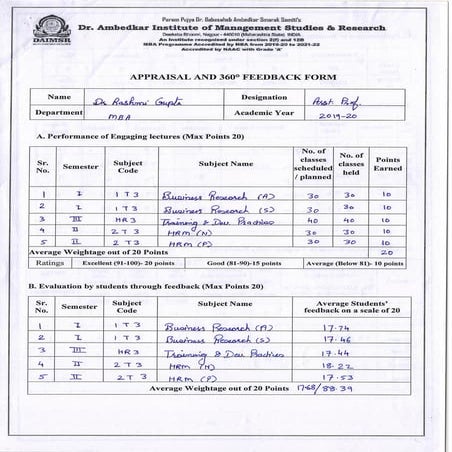 Param Pujya Dr. Babasaheb Ambedkar Smarak Samiti's
Dr. Ambedkar Institute of Management Studies & Research
Deeksha Bhoomi, Nagpur - 440010 (Maharashtra State) INDIA
An Institution recognised under section 2(f) and 12B
MBA Programme Accredited by NBA from 2019-20 to 2021-22
Accredited by NAAC with Grade 'A'
DAIMSR
APPRAISAL AND 360° FEEDBACK FORM
Name Dr. Rashmi Gupta Designation Asst Prof.
Department MBA Academic Year 2019-20
A. Performance of Engaging lectures (Max Points 20)
Sr. No. Semester Subject Code Subject Name No. of classes scheduled / planned No. of classes held Points Earned
1 I 1T3 Business Research (A) 30 30 10
2 I 1T3 Business Research (S) 30 30 10
3 III HR3 Training & Dev. Practices 40 40 10
4 II 2T3 HRM (N) 30 30 10
5 II 2T3 HRM (P) 30 30 10
Average Weightage out of 20 Points 20
Ratings Excellent (91-100)- 20 points Good (81-90)-15 points Average (Below 81)- 10 points
B. Evaluation by students through feedback (Max Points 20)
Sr. No. Semester Subject Code Subject Name Average Students' feedback on a scale of 20
1 I 1T3 Business Research (A) 17.74
2 I 1T3 Business Research (S) 17.46
3 III HR3 Training & Dev Practices 17.44
4 II 2T3 HRM (N) 18.22
5 II 2T3 HRM (P) 17.53
Average Weightage out of 20 Points 17.68/88.39